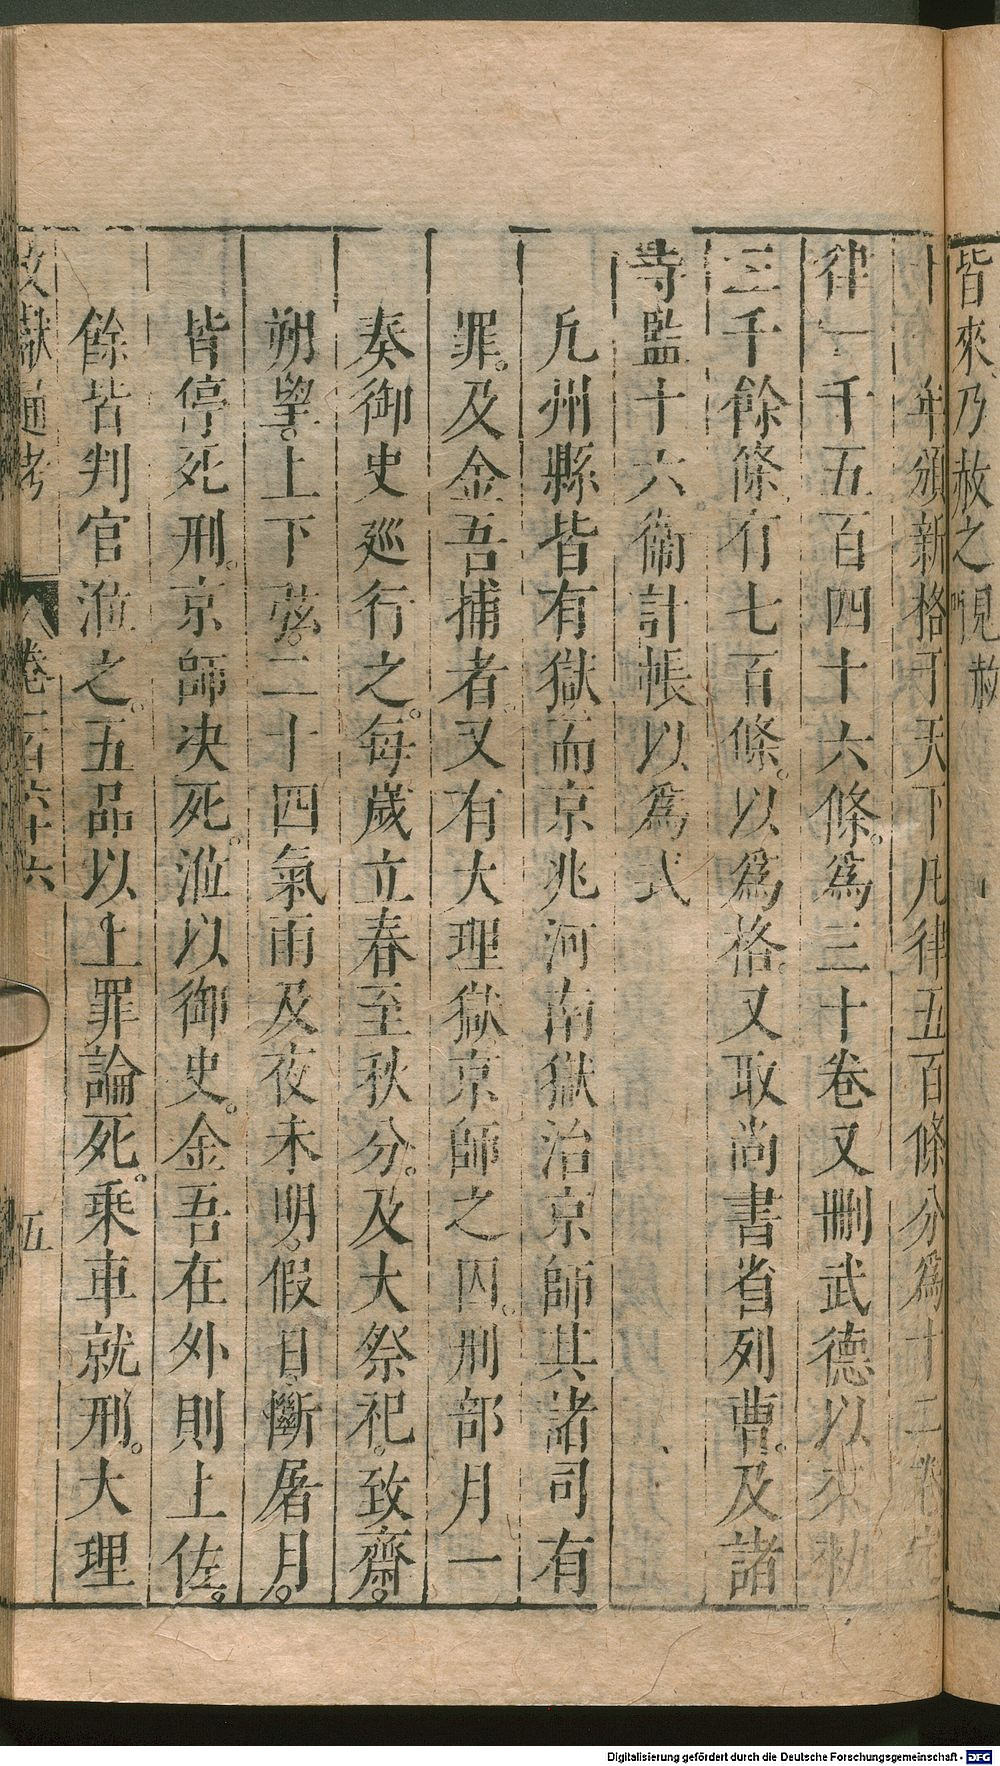 皆來乃赦之見赦
門
十一年頒新格于天下凡律五百條分爲十二卷定
律一千五百四十六條。爲三十卷又刪武德以來勑
三千餘條行七百條。以爲格。又取尚書省列曹。及諸
寺監十六衞計帳以爲式
凡州縣皆有獄而京兆河南獄治京師其諸司有
罪。及金吾捕者。又有大理獄京師之囚。刑部月一
奏御史廵行之。每歲立春至秋分。及大祭祀。致齋。
朔望。上下弦。二十四氣雨及夜未明。假日。斷屠月。
皆停死刑。京師决死。涖以御史。金吾在外則上佐。
餘皆判官涖之。五品以上罪論死。乘車就刑。大理
文獻通考
卷一百六十六
五
Digitalisierung gefördert durch die Deutsche Forschungsgemeinschaft - DFG